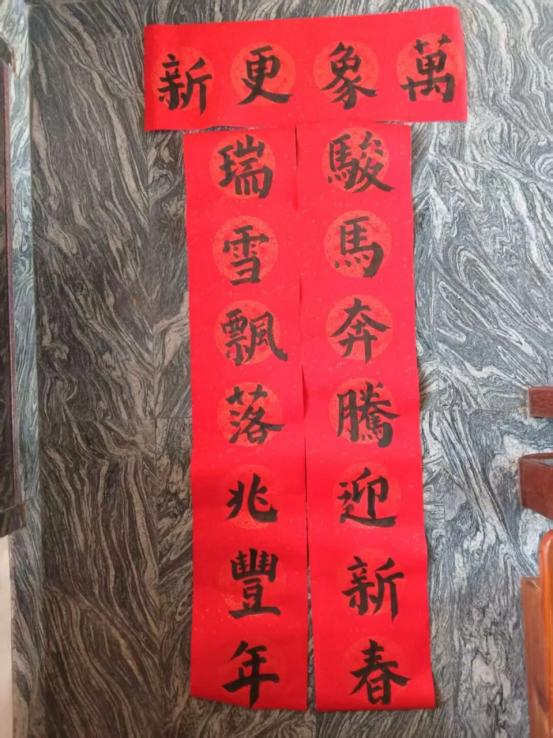 萬象更新
駿馬奔騰迎新春
瑞雪飄落兆豐年